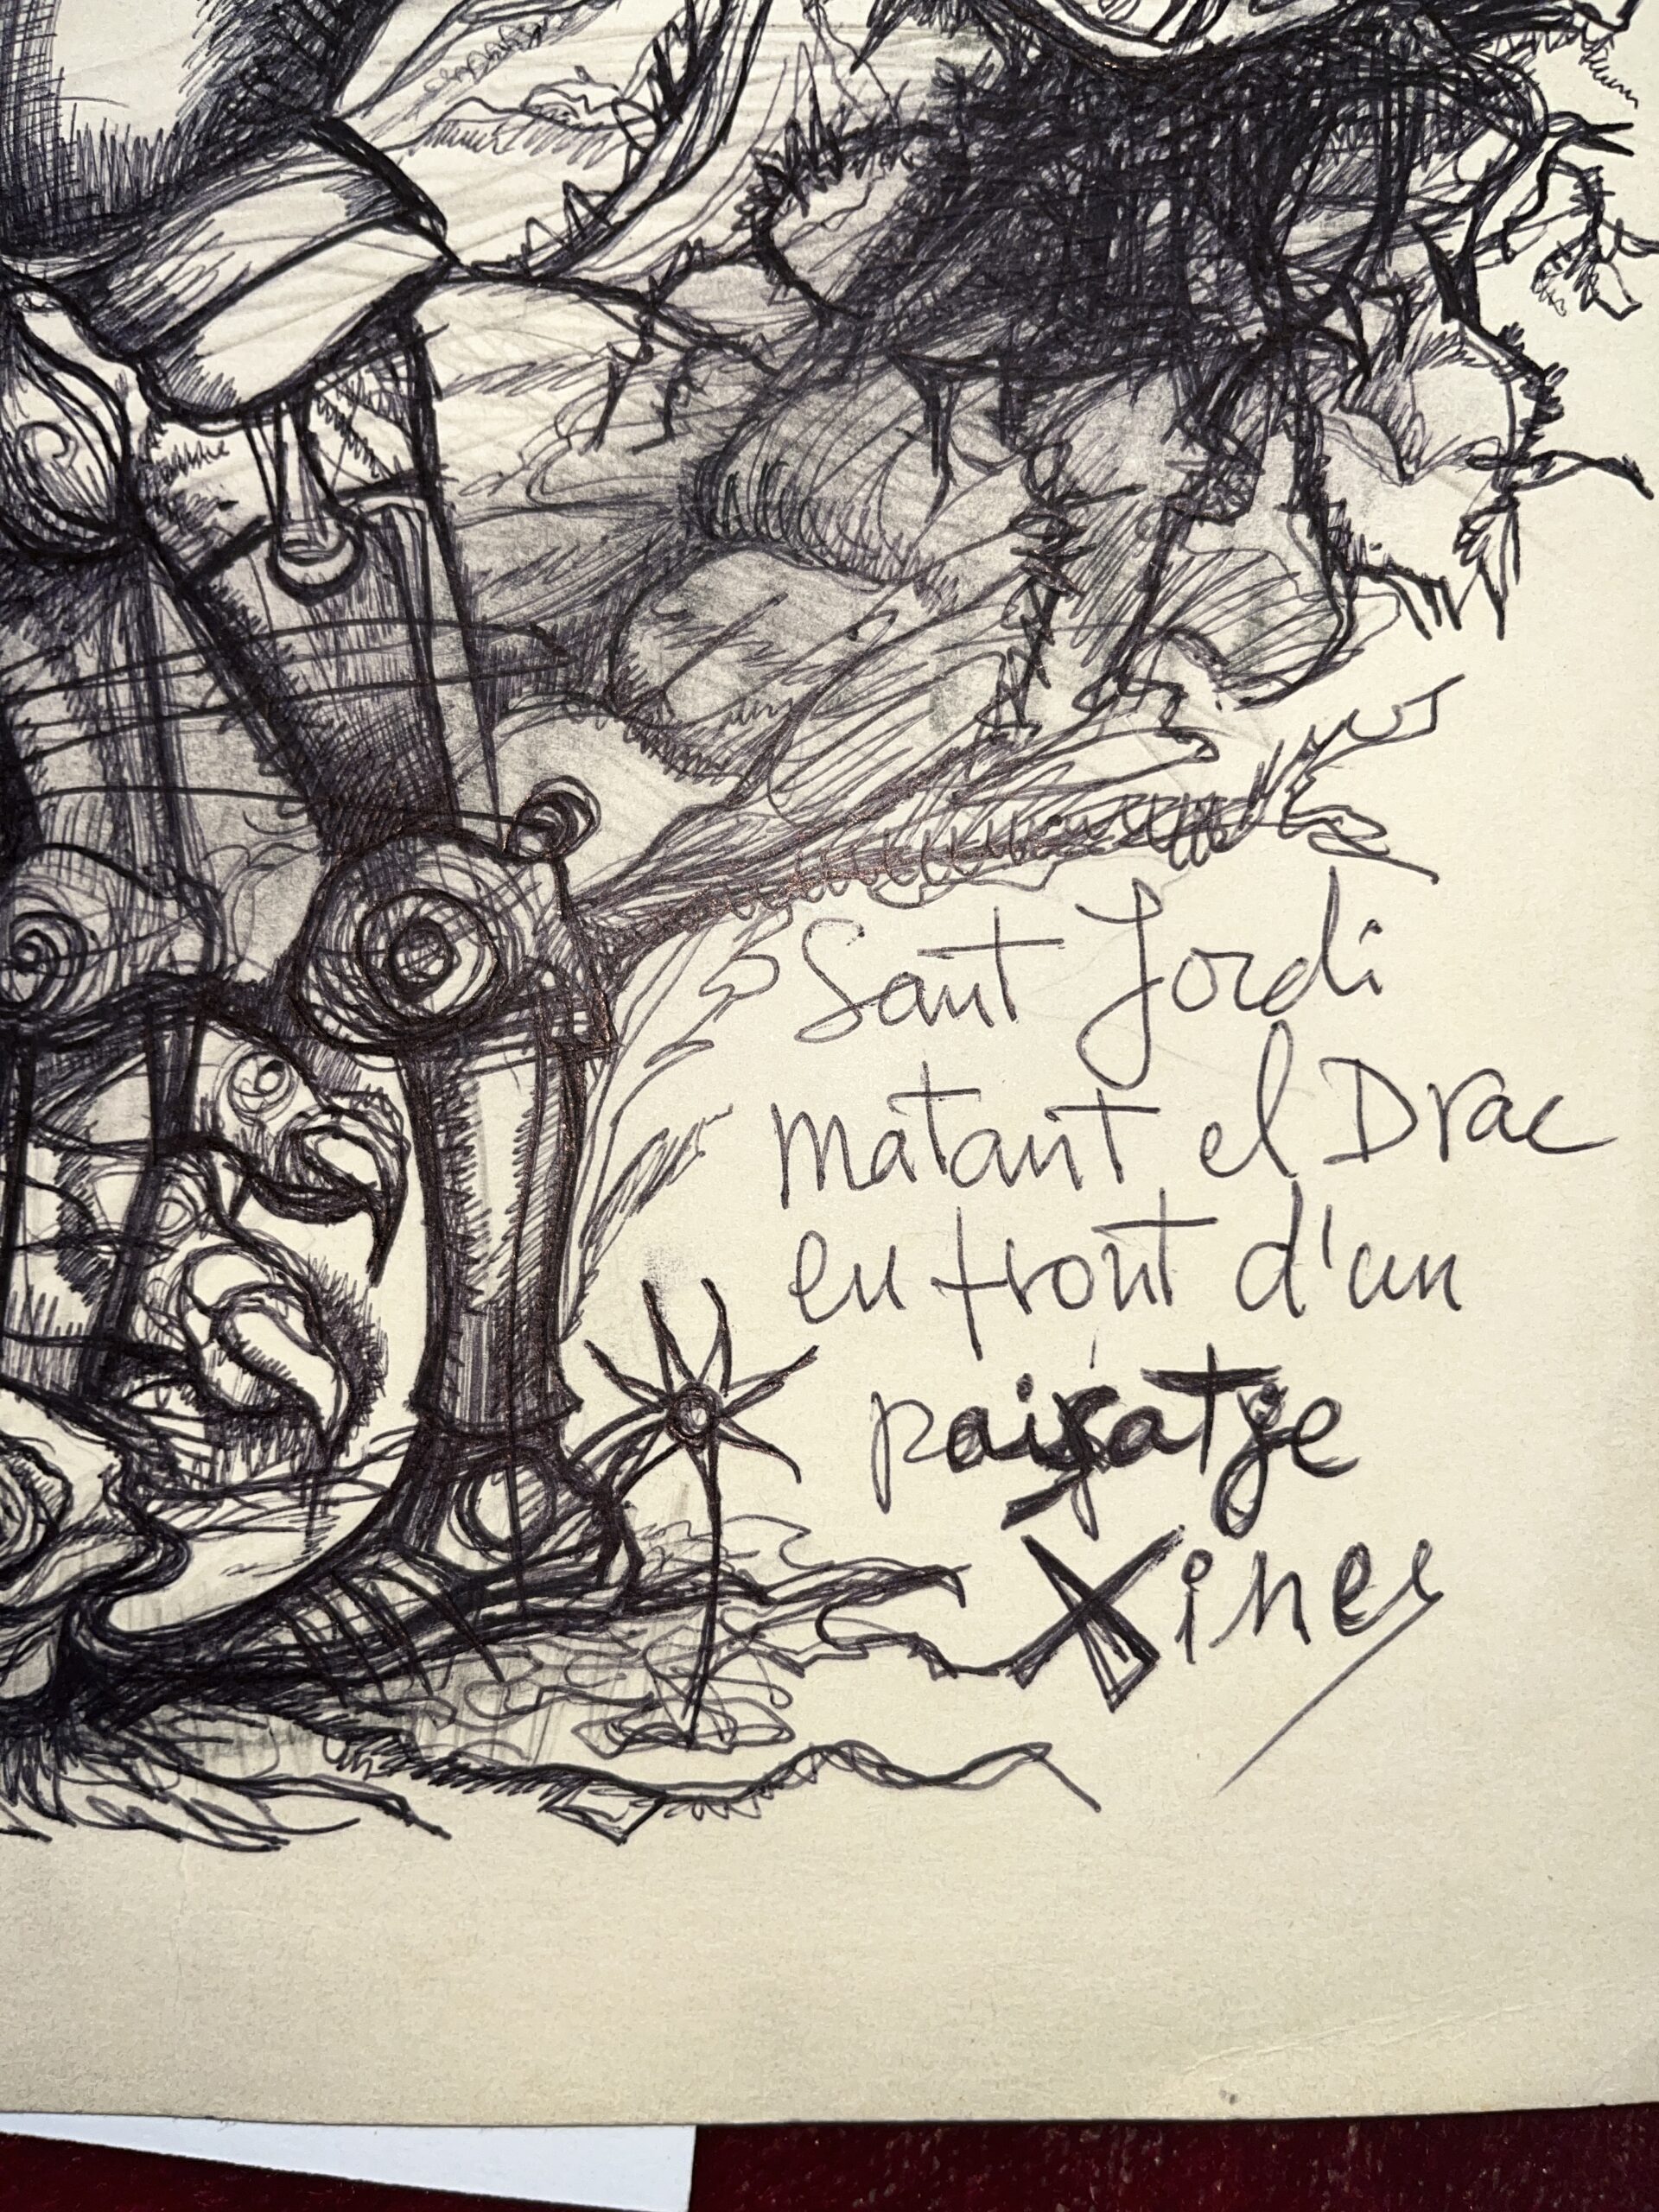 Sant Jordi
matant el Drac
en front d'un
paisatge
Xines